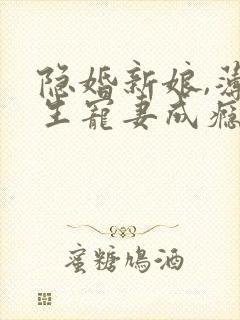 隐婚新娘,薄
生宠妻成瘾
蜜糖鸩酒